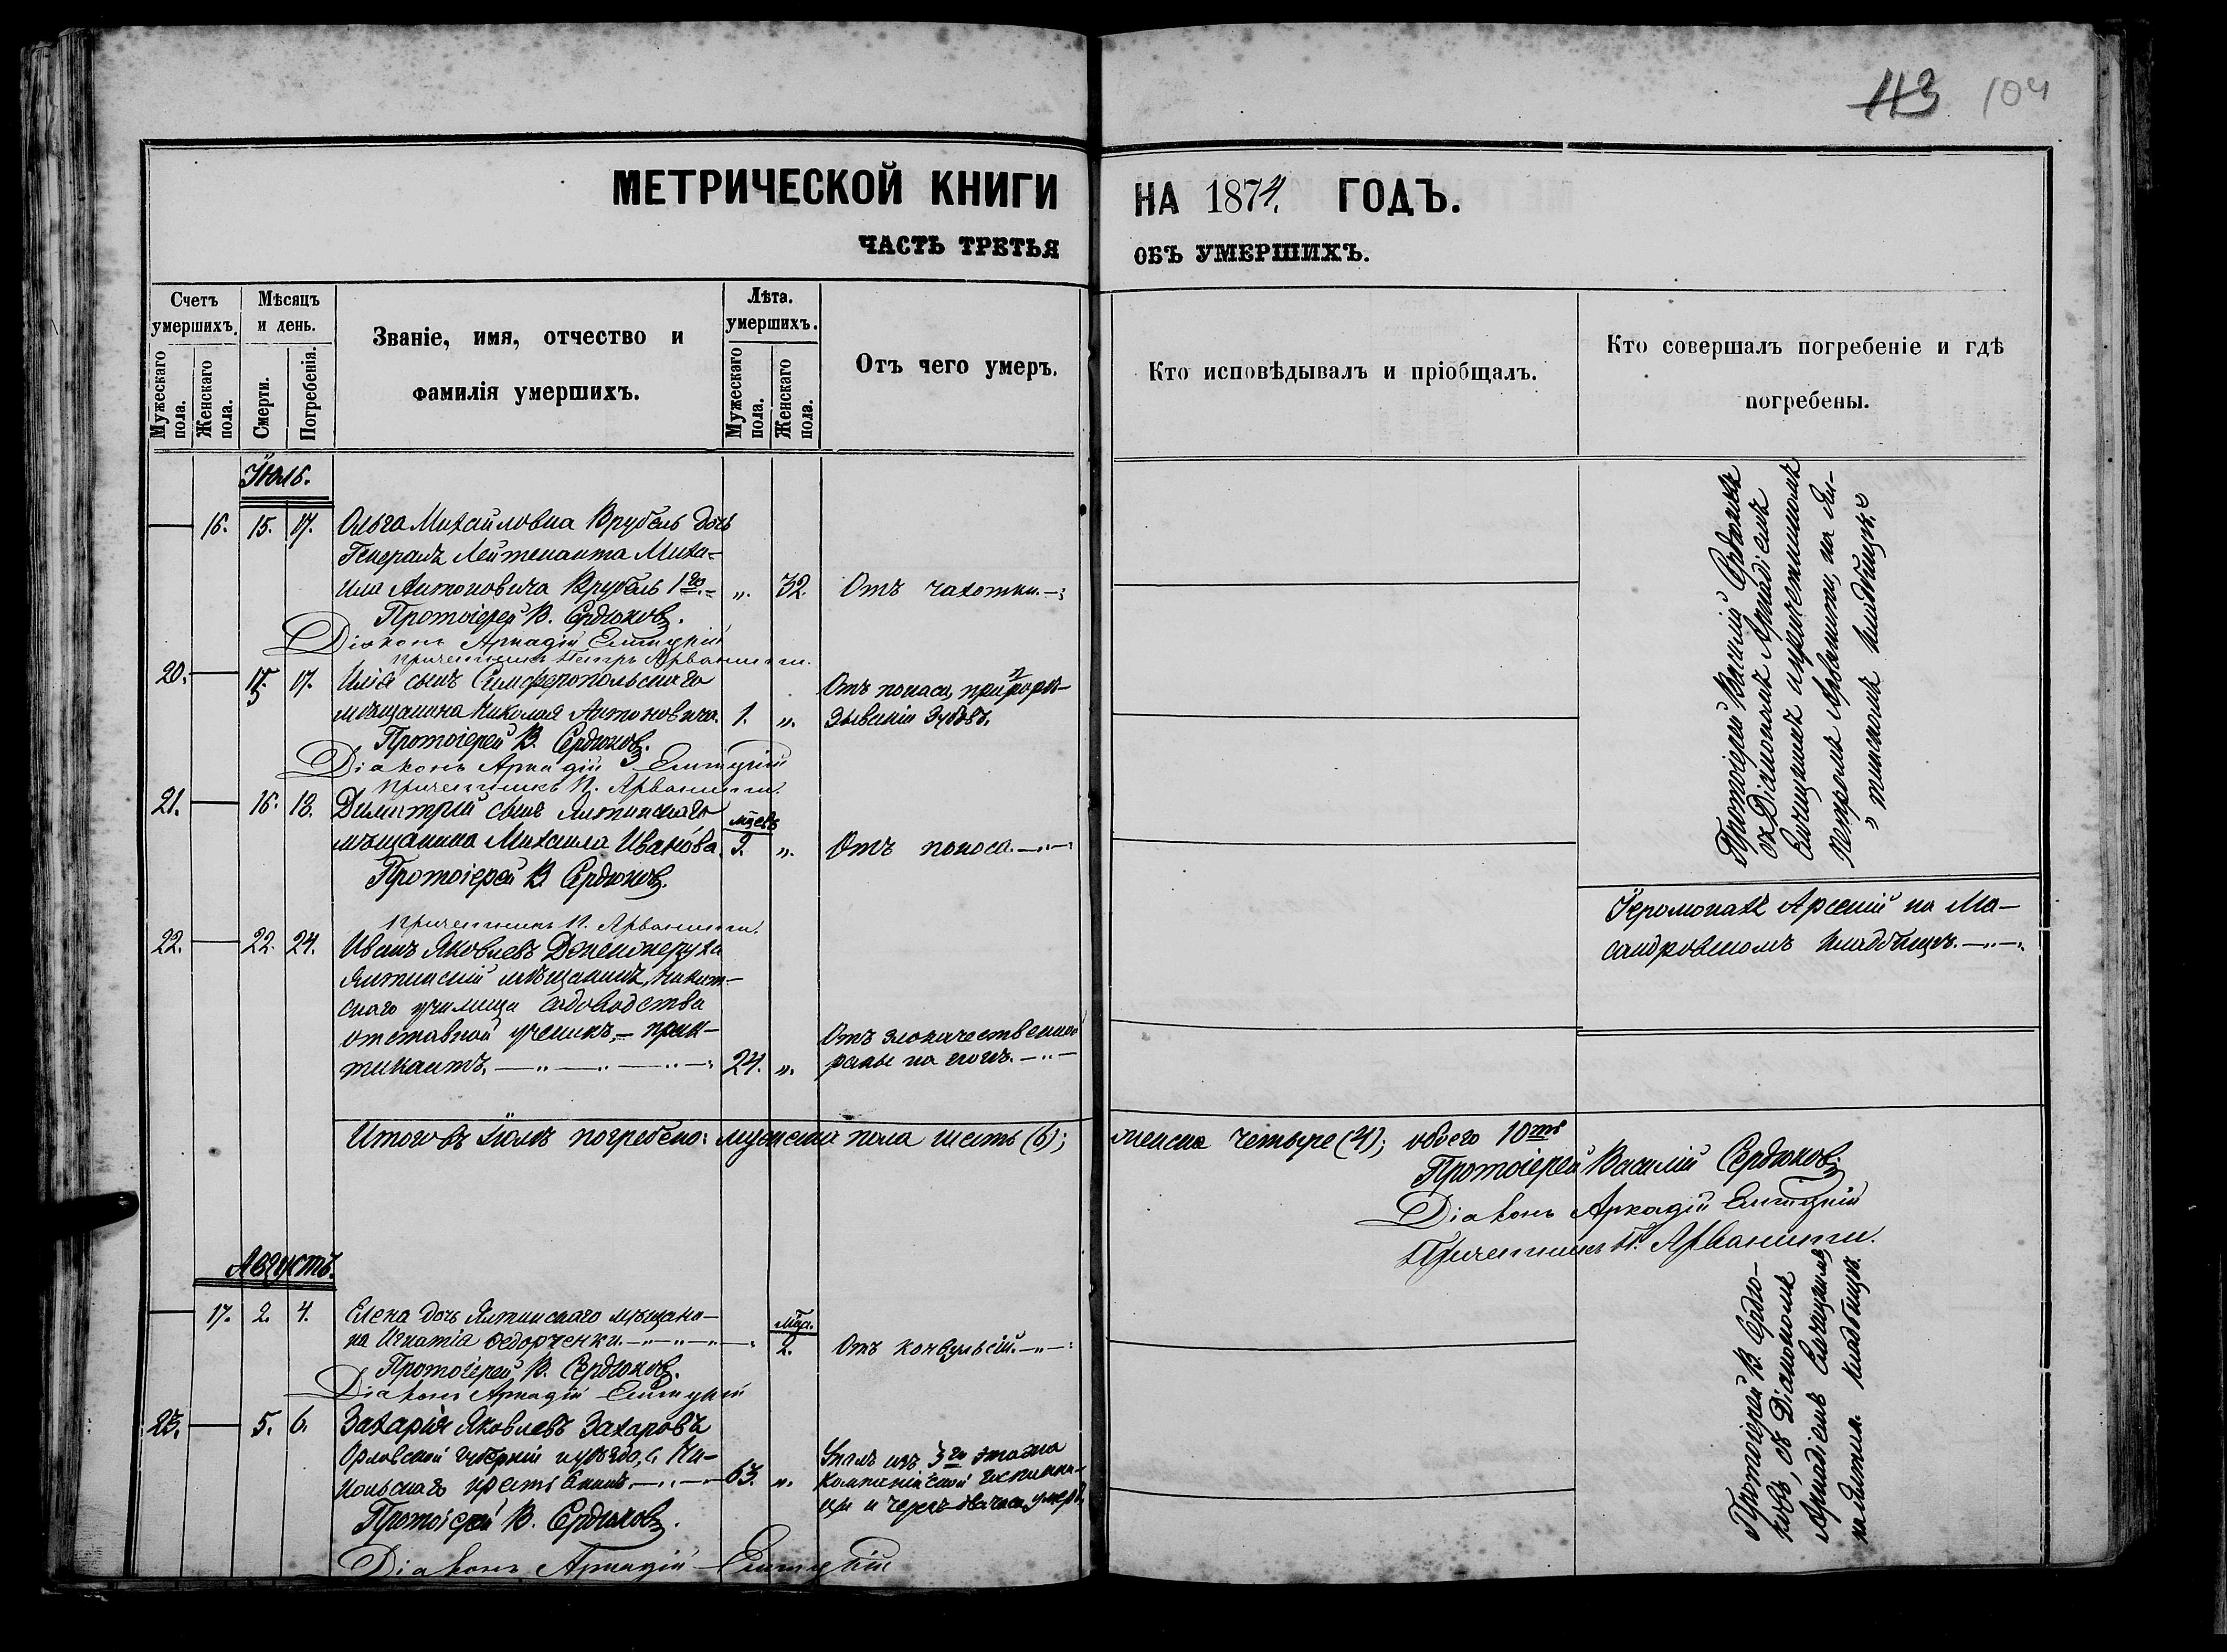 113 104
МЕТРИЧЕСКОЙ КНИГИ НА 1874. ГОДЪ.
ЧАСТЬ ТРЕТЬЯ ОБЪ УМЕРШИХЪ.
Счетъ умершихъ.
Мужескаго пола.
Женскаго пола.
Мѣсяцъ и день.
Смерти.
Погребенія.
Званіе, имя, отчество и
фамилія умершихъ.
Лѣта.
умершихъ.
Мужескаго пола.
Женскаго пола.
Отъ чего умеръ.
Кто исповѣдывалъ и пріобщалъ.
Кто совершалъ погребеніе и гдѣ
погребены.
Іюль.
16. 15. 17. Ольга Михайловна Врубель дочь
Генералъ Лейтенанта Миха-
ила Антоновича Врубель 1го. „. 32. Отъ чахотки.
Протоіерей В. Сердюковъ.
Діаконъ Аркадій
Причетникъ Петръ Арванити.
20. 15. 17. Илія сынъ Симферопольскаго
мѣщанина Николая Антоновича. 1. „.
Отъ поноса, при прорѣ-
зываніи зубовъ.
Протоіерей В. Сердюковъ.
Діаконъ Аркадій
Причетникъ П. Арванити.
21. 16. 18. Димитрій сынъ Ялтинскаго
мѣщанина Михаила Иванова. мцевъ 9. „. Отъ поноса.
Протоіерей В. Сердюковъ.
Причетникъ П. Арванити.
22. 22. 24. Иванъ Яковлевъ
Ялтинскій мѣщанинъ, Никит-
скаго училища садоводства
отставной ученикъ-прак-
тикантъ. 24. „.
Отъ злокачественной
раны на ногѣ.
Протоіерей Василій Сердюковъ
съ Діакономъ Аркадіемъ
и причетникомъ
Петромъ Арванити, на Ял-
тинскомъ кладбищѣ.
Іеромонахъ Арсеній на Ма-
сандровскомъ кладбищѣ.
Итого въ Іюлѣ погребено: мужеска пола шесть (6); женска четыре (4); обоего 10ть
Протоіерей Василій Сердюковъ.
Діаконъ Аркадій
Причетникъ П. Арванити.
Августъ.
17. 2. 4. Елена дочь Ялтинскаго мѣщани-
на Игнатія Федорченки. мца. 2. Отъ конвульсій.
Протоіерей В. Сердюковъ.
Діаконъ Аркадій
23. 5. 6. Захарія Яковлевъ Захаровъ
Орловской губерніи и уѣзда, с. Ни-
кольскаго крестьянинъ. 63. „.
Упалъ изъ 3го этажа
Компанійской гостинни-
цы и черезъ два часа умеръ.
Протоіерей В. Сердюковъ.
Діаконъ Аркадій
Протоіерей В. Сердю-
ковъ, съ Діакономъ
Аркадіемъ
кладбищѣ.